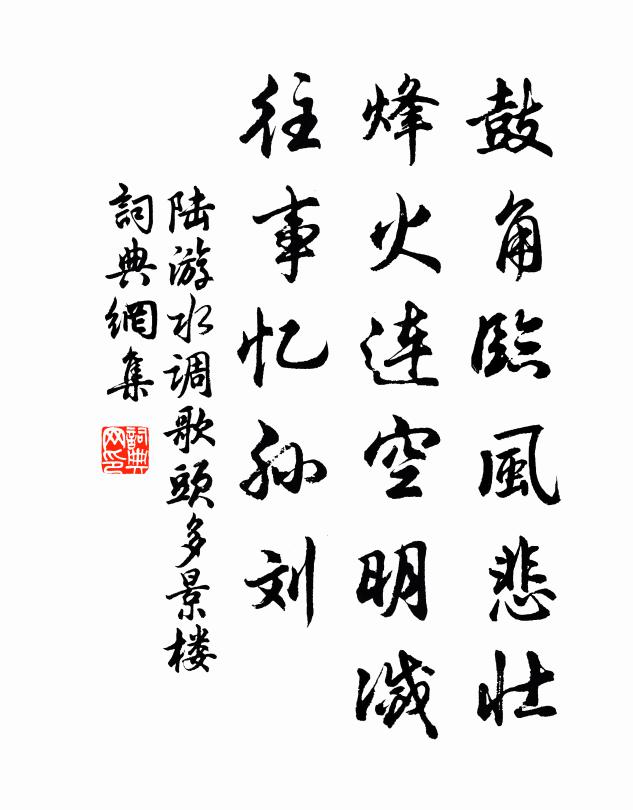 鼓角臨風悲壮
烽火连空明滅
往事忆孙刘
陆游水调歌頭多景楼
詞典網集
詞典
网印